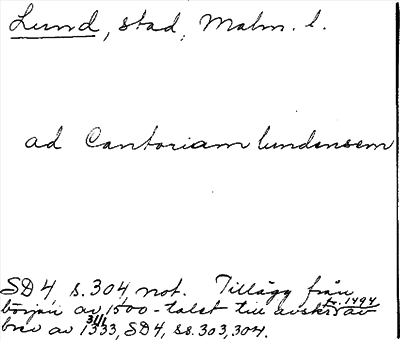 Lund, stad, Malm. l.
ad Cantoriam lundensem
SD 4, s. 304, not. Tillägg från
början av 1500-talet till avskr. av
tr. 1494
brev av 31/1 1333, SD 4, ss. 303, 304.